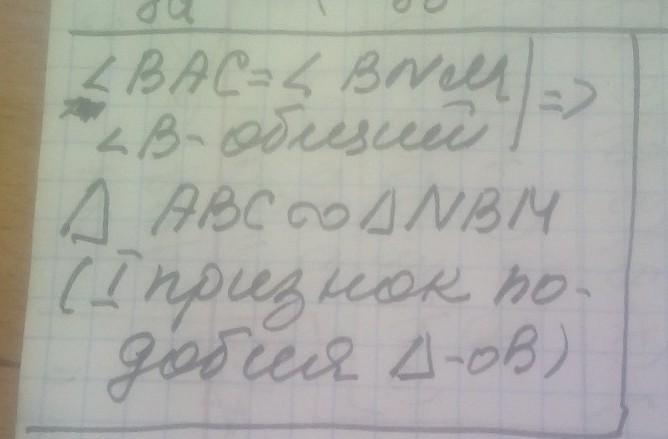 ∠BAC=∠BNM | =>
∠B - общий
Δ ABC ∞ ΔNBM
(I признок по-
добия Δ-ов)